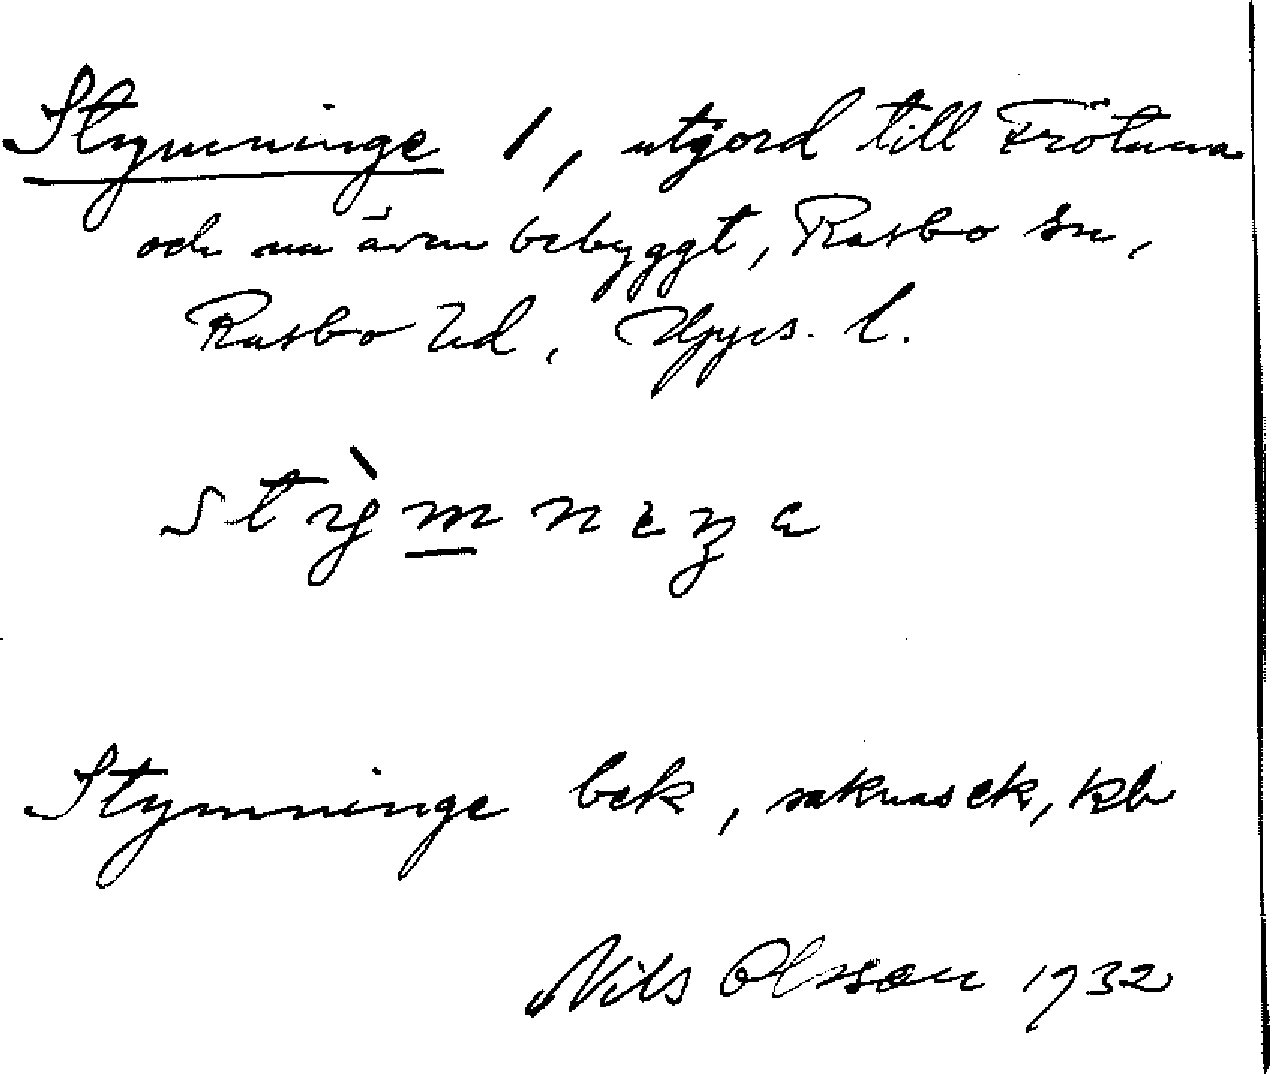 Stymninge 1, utjord till Frötuna
och nu även bebyggt, Rasbo sn,
Rasbo hd, Upps. l.
stỳm̲neŋe
Stymninge bek, saknas ek, kb
Nils Olsson 1932